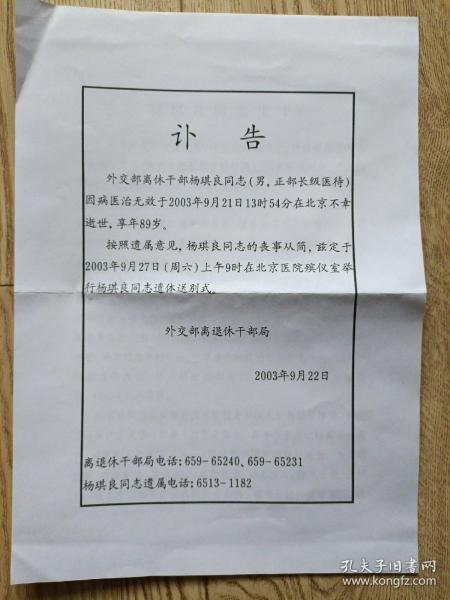 讣 告
外交部离休干部杨琪良同志(男,正部长级医待)
因病医治无效于2003年9月21日13时54分在北京不幸
逝世,享年89岁。
按照遗属意见,杨琪良同志的丧事从简,兹定于
2003年9月27日(周六)上午9时在北京医院殡仪室举
行杨琪良同志遗体送别式。
外交部离退休干部局
2003年9月22日
离退休干部局电话:659-65240、659-65231
杨琪良同志遗属电话:6513-1182
孔夫子旧书网
www.kongfz.com